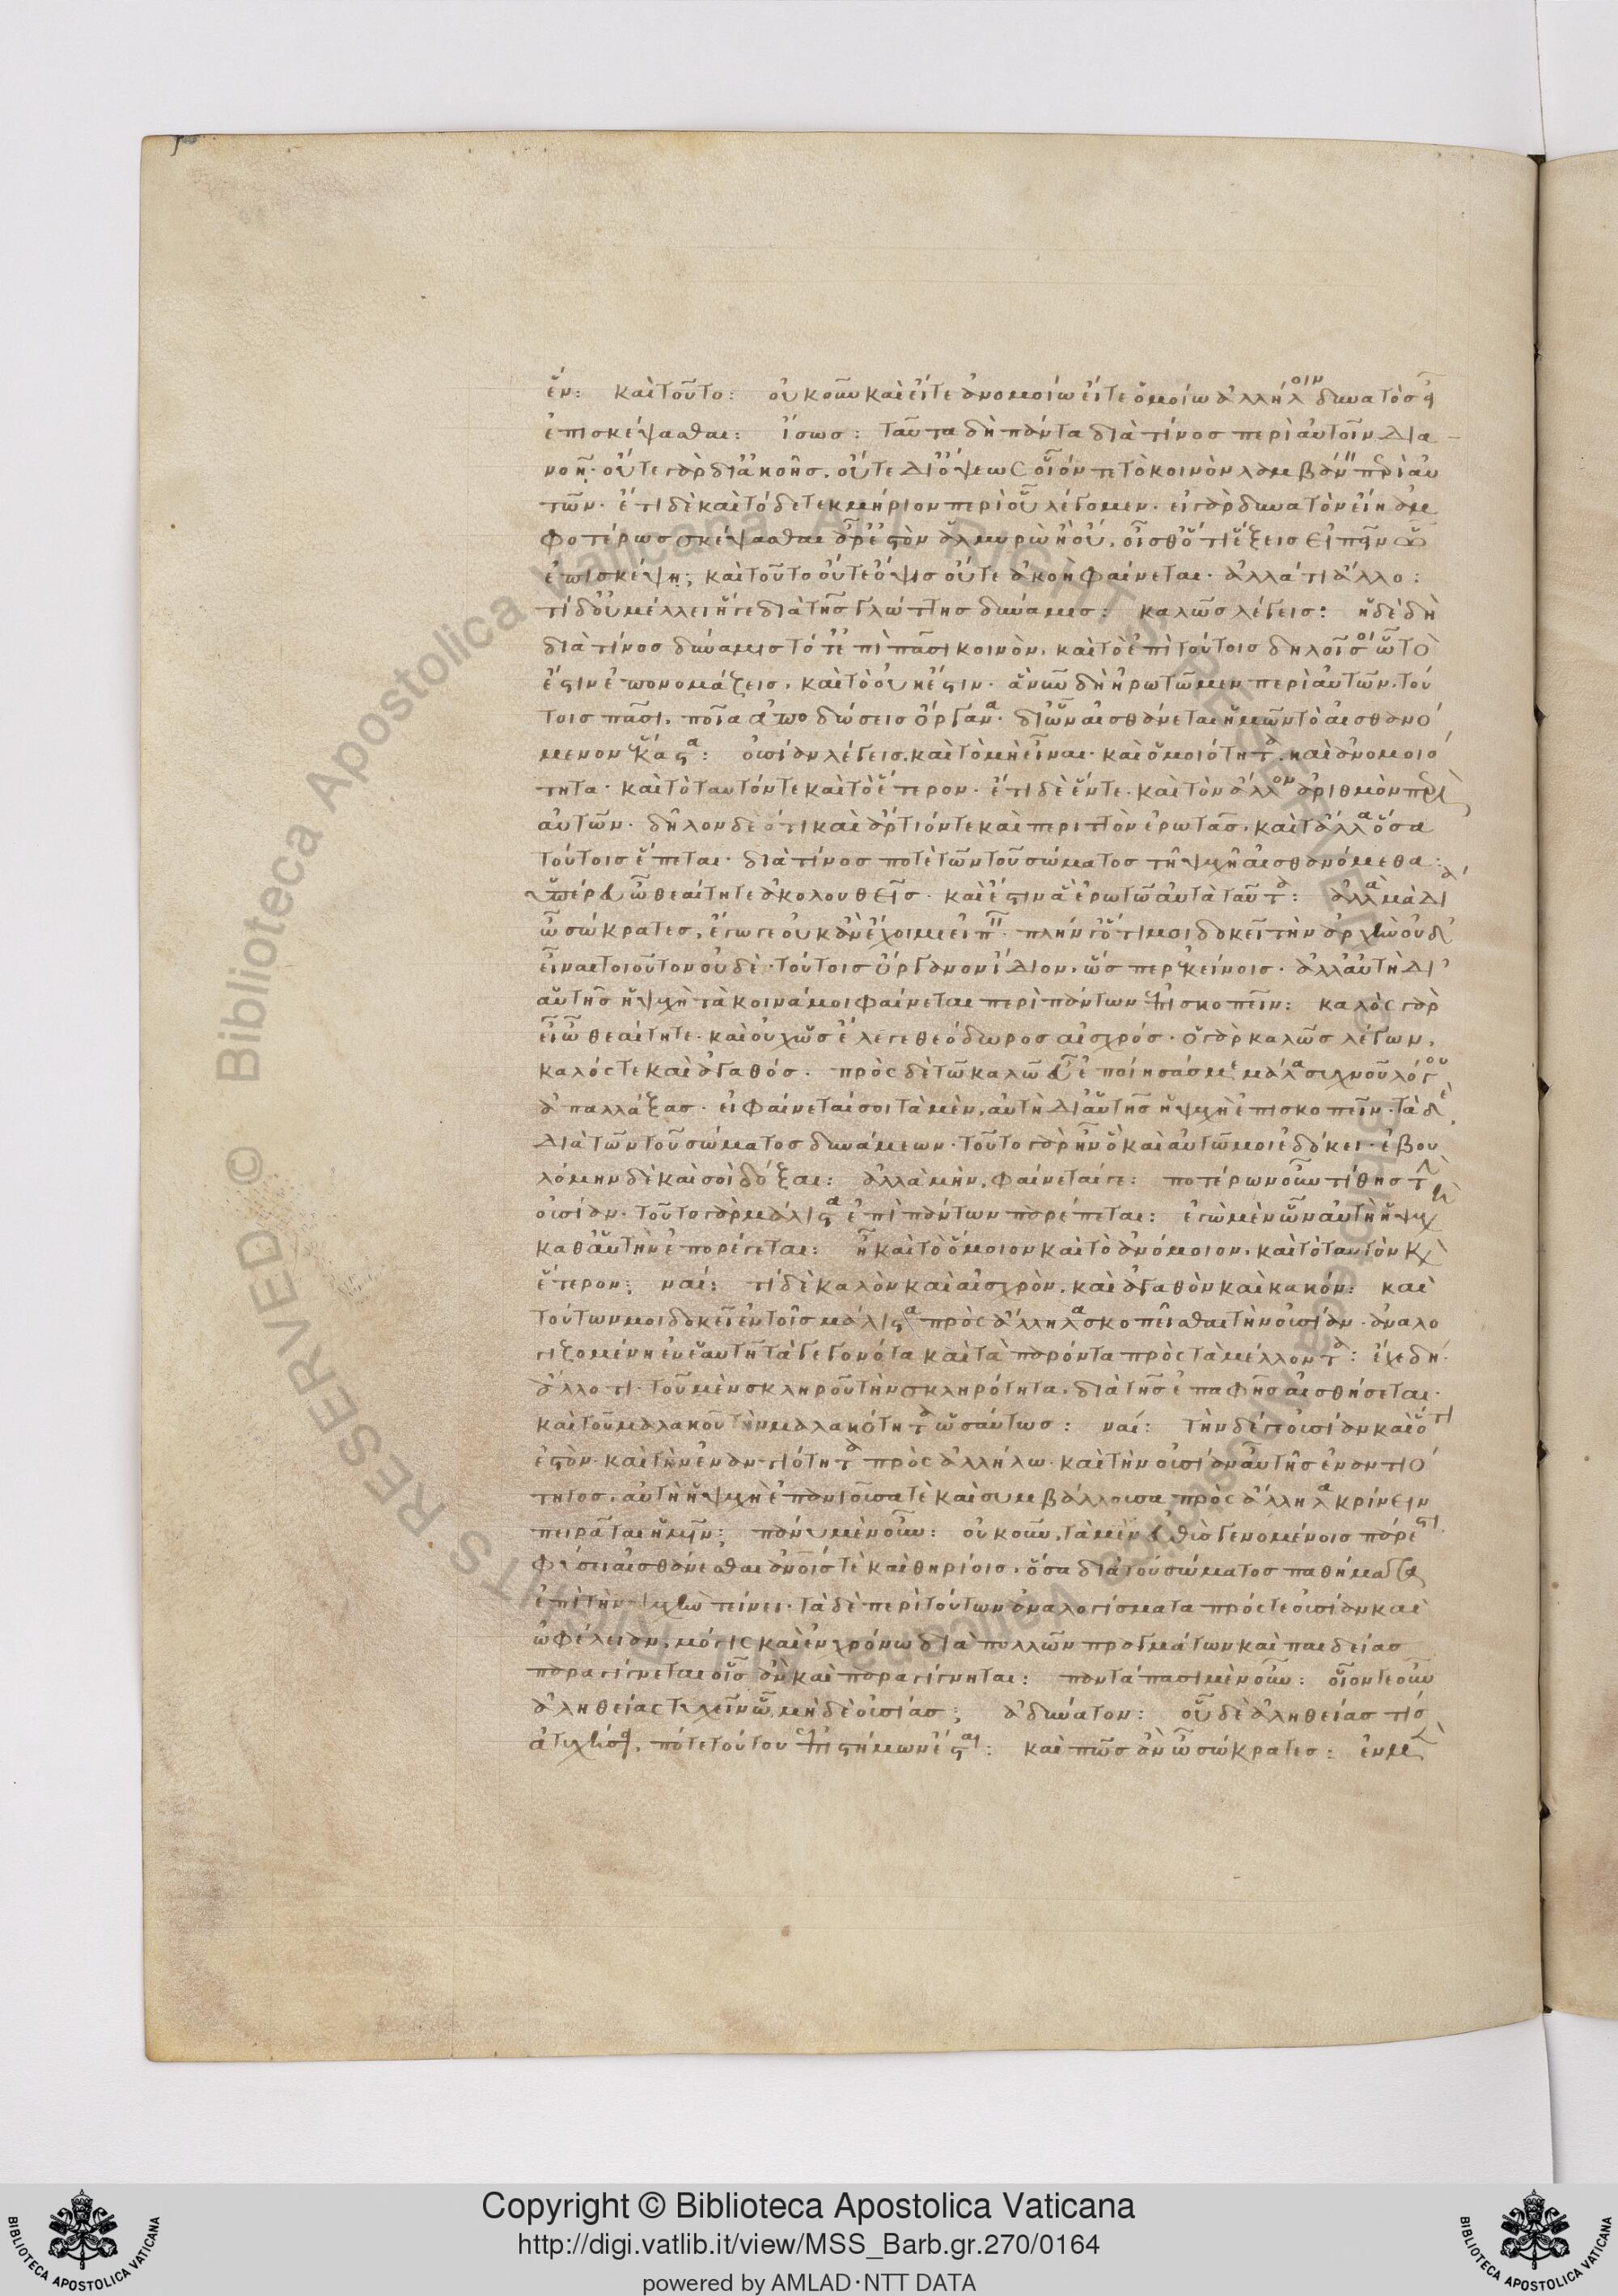 ἕν: καὶ τοῦτο: οὐκοῦν καὶ εἴτε ἀνομοίω εἴτε ὁμοίω ἀλλήλοιν δυνατὸς εἶ
ἐπισκέψασθαι: ἴσως: ταῦτα δὴ πάντα διὰ τίνος περὶ αὐτοῖν δια
νοῆ· οὔτε γὰρ δι' ἀκοῆς, οὔτε δι' ὄψεως οἷόν τε τὸ κοινὸν λαμβάνειν περὶ αὐ
τῶν· ἔτι δὲ καὶ τόδε τεκμήριον περὶ οὗ λέγομεν· εἰ γὰρ δυνατὸν εἴη ἀμ
φοτέρω σκέψασθαι ἆρ' ἐστὸν ἁλμυρὼ ἢ οὔ, οἶσθ' ὅτι ἕξεις εἰπεῖν ὧ
ἐπισκέψη; καὶ τοῦτο οὔτε ὄψις οὔτε ἀκοὴ φαίνεται· ἀλλά τι ἄλλο:
τί δ' οὐ μέλλει ἥγε διὰ τῆς γλώττης δύναμις: καλῶς λέγεις: ἡ δὲ δὴ
διὰ τίνος δύναμις τό τ' ἐπὶ πᾶσι κοινὸν, καὶ τὸ ἐπὶ τούτοις δηλοῖ σοι ὧ τὸ
ἔστιν ἐπονομάζεις, καὶ τὸ οὐκ ἔστιν· ἃ νῦν δὴ ἠρωτῶμεν περὶ αὐτῶν. τού
τοις πᾶσι, ποῖα ἀποδώσεις ὄργανα· δι' ὧν αἰσθάνεται ἡμῶν τὸ αἰσθανό
μενον ἕκαστα: οὐσίαν λέγεις. καὶ τὸ μὴ εἶναι· καὶ ὁμοιότητα. καὶ ἀνομοιό
τητα· καὶ τὸ ταυτόν τε καὶ τὸ ἕτερον· ἔτι δὲ ἕν τε· καὶ τὸν ἄλλον ἀριθμὸν περὶ
αὐτῶν· δῆλον δὲ ὅτι καὶ ἄρτιόν τε καὶ περιττὸν ἐρωτᾶς, καὶ τἄλλα ὅσα
τούτοις ἕπεται· διὰ τίνος ποτὲ τῶν τοῦ σώματος τῆ ψυχῆ αἰσθανόμεθα:
ὑπέρευ ὦ θεαίτητε ἀκολουθεῖς· καὶ ἔστιν ἃ ἐρωτῶ αὐτὰ ταῦτα: ἀλλὰ μὰ δί'
ὦ σώκρατες, ἔγωγε οὐκ ἂν ἔχοιμι εἰπεῖν· πλήν γ' ὅτι μοι δοκεῖ τὴν ἀρχὴν οὐδ'
εἶναι τοιοῦτον οὐδὲν τούτοις ὄργανον ἴδιον, ὥσπερ ἐκείνοις· ἀλλ' αὐτὴ δι'
αὑτῆς ἡ ψυχὴ τὰ κοινά μοι φαίνεται περὶ πάντων ἐπισκοπεῖν: καλὸς γὰρ
εἶ ὦ θεαίτητε· καὶ οὐχ ὡς ἔλεγε θεόδωρος αἰσχρός· ὁ γὰρ καλῶς λέγων,
καλός τε καὶ ἀγαθός. πρὸς δὲ τῶ καλῶ εὖ ἐποίησάς με μάλα συχνοῦ λόγου
ἀπαλλάξας· εἰ φαίνεταί σοι τὰ μὲν, αὐτὴ δι' αὑτῆς ἡ ψυχὴ ἐπισκοπεῖν· τὰ δὲ
διὰ τῶν τοῦ σώματος δυνάμεων· τοῦτο γὰρ ἦν ὃ καὶ αὐτῶ μοι ἐδόκει· ἐβου
λόμην δὲ καὶ σοὶ δόξαι: ἀλλὰ μὴν, φαίνεταί γε: ποτέρων οὖν τίθης τὴν
οὐσίαν· τοῦτο γὰρ μάλιστα ἐπὶ πάντων παρέπεται: ἐγὼ μὲν ὧν αὐτὴ ἡ ψυχὴ
καθ' αὑτὴν ἐπορέγεται: ἦ καὶ τὸ ὅμοιον καὶ τὸ ἀνόμοιον, καὶ τὸ ταυτὸν καὶ
ἕτερον; ναί: τί δὲ καλὸν καὶ αἰσχρὸν, καὶ ἀγαθὸν καὶ κακόν: καὶ
τούτων μοι δοκεῖ ἐν τοῖς μάλιστα πρὸς ἄλληλα σκοπεῖσθαι τὴν οὐσίαν· ἀναλο
γιζομένη ἐν ἑαυτῆ τὰ γεγονότα καὶ τὰ παρόντα πρὸς τὰ μέλλοντα: ἔχε δή·
ἄλλο τι· τοῦ μὲν σκληροῦ τὴν σκληρότητα, διὰ τῆς ἐπαφῆς αἰσθήσεται·
καὶ τοῦ μαλακοῦ τὴν μαλακότητα ὡσαύτως: ναί: τὴν δέ γε οὐσίαν καὶ ὅτι
ἐστὸν· καὶ τὴν ἐναντιότητα πρὸς ἀλλήλω· καὶ τὴν οὐσίαν αὖ τῆς ἐναντιό
τητος, αὐτὴ ἡ ψυχὴ ἐπανιοῦσά τε καὶ συμβάλλουσα πρὸς ἄλληλα κρίνειν
πειρᾶται ἡμῖν; πάνυ μὲν οὖν: οὐκοῦν, τὰ μὲν εὐθὺς γενομένοις πάρεστι
φύσει αἰσθάνεσθαι ἀνοις τὲ καὶ θηρίοις, ὅσα διὰ τοῦ σώματος παθήματα
ἐπὶ τὴν ψυχὴν τείνει· τὰ δὲ περὶ τούτων ἀναλογίσματα πρός τε οὐσίαν καὶ
ὠφέλειαν, μόγις καὶ ἐν χρόνω διὰ πολλῶν πραγμάτων καὶ παιδείας
παραγίγνεται οἷς ἂν καὶ παραγίγνηται: παντάπασι μὲν οὖν: οἷόν τε οὖν
ἀληθείας τυχεῖν ὧ μὴδὲ οὐσίας; ἀδύνατον: οὗ δὲ ἀληθείας τίς
ἀτυχήσει, πότε τούτου ἐπιστήμων ἔσται: καὶ πῶς ἂν ὦ σώκρατες: ἐν μὲν
Copyright © Biblioteca Apostolica Vaticana
http://digi.vatlib.it/view/MSS_Barb.gr.270/0164
powered by AMLAD·NTT DATA